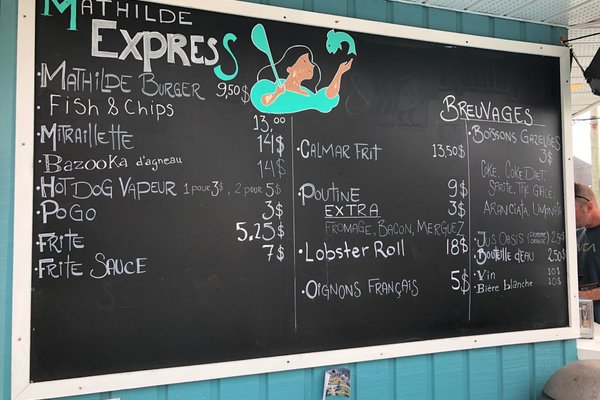 Mathilde
Express
Mathilde Burger 9,50$
Fish & Chips 13,00
Mitraillette 14$
Bazooka d'agneau 14$
Hot Dog Vapeur 1 pour 3$, 2 pour 5$
Pogo 3$
Frite 5.25$
Frite Sauce 7$
Calmar Frit 13,50$
Poutine 9$
Extra 3$
Fromage, Bacon, Merguez
Lobster Roll 18$
Oignons Français 5$
Breuvages
Boissons Gazeuses
3$
Coke, Coke Diet
Sprite, Thé Glacé,
Aranciata, Limonata
Jus Oasis 2.50$
Bouteille d'eau 2.50$
Vin 10$
Bière blanche 10$